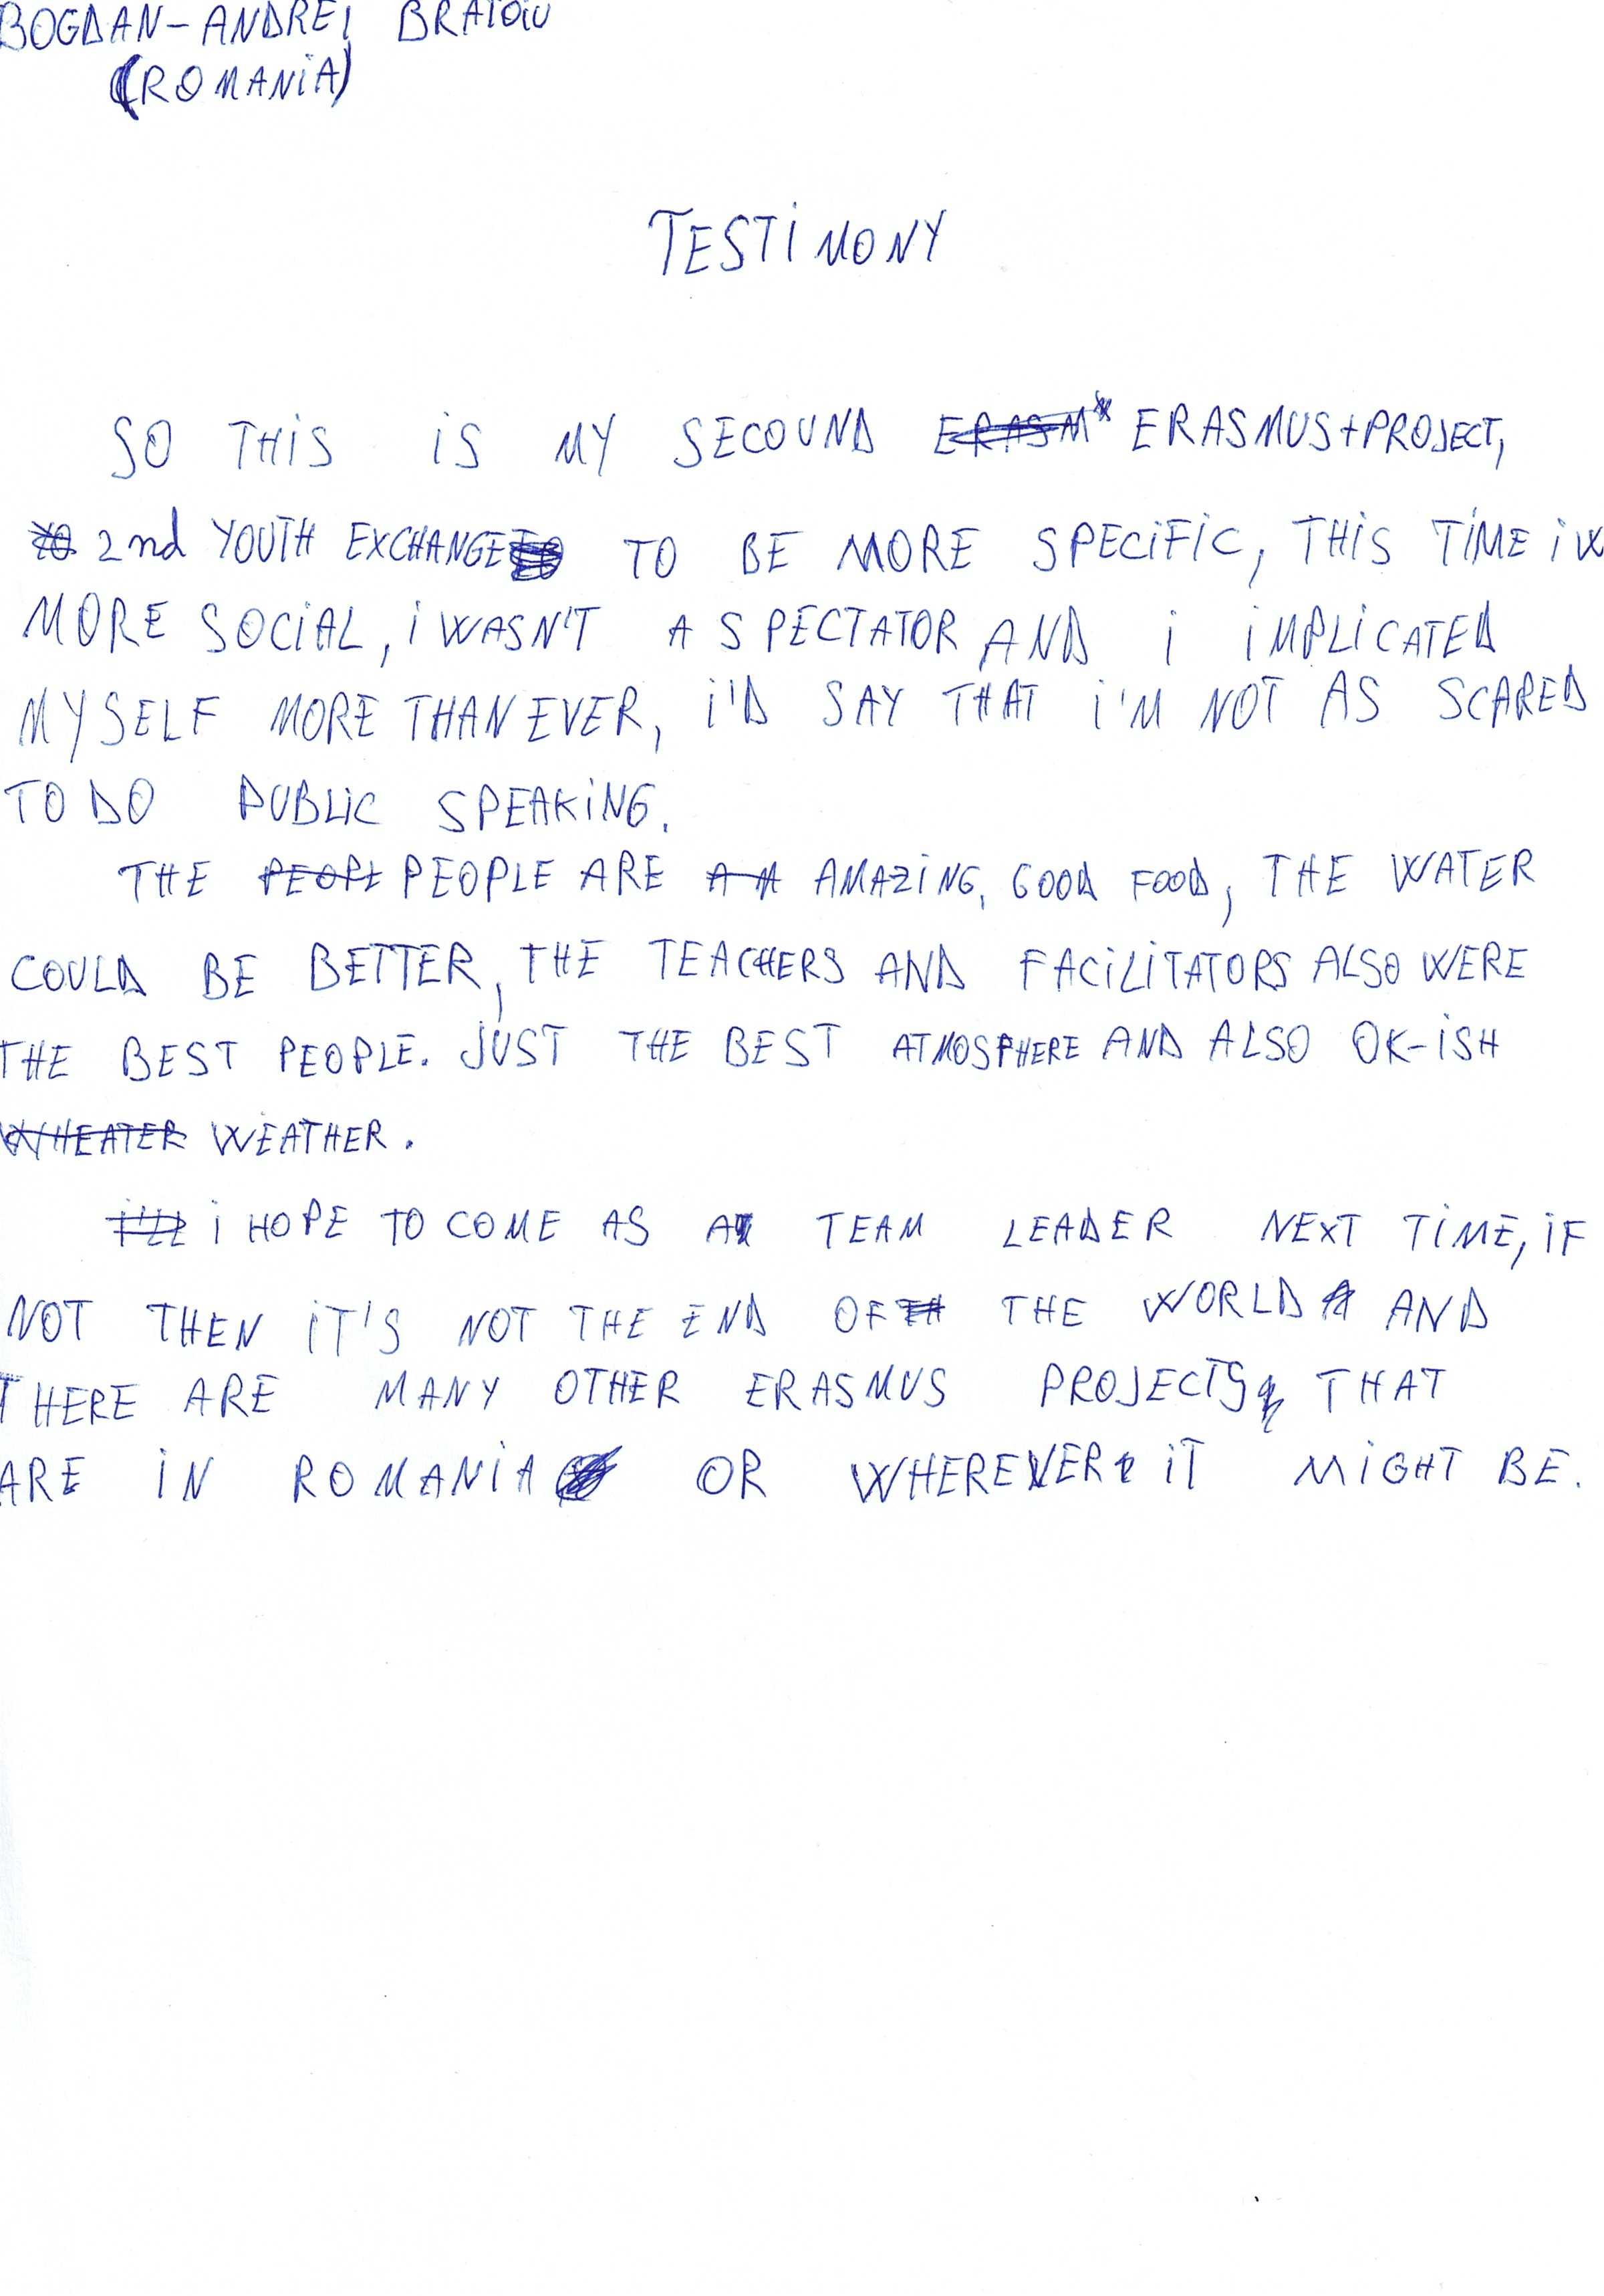 BOGDAN-ANDREI BRATOIU
(ROMANiA)
TESTiMONY
SO THiS iS MY SECOUND ERASMUS+PROJECT,
2nd YOUTH EXCHANGE TO BE MORE SPECiFiC, THiS TiME i
MORE SOCiAL, i WASN'T A SPECTATOR AND i iMPLiCATED
MYSELF MORE THAN EVER, i'D SAY THAT i'M NOT AS SCARED
TO DO PUBLiC SPEAKiNG.
THE PEOPLE ARE AMAZiNG, GOOD FOOD, THE WATER
COULD BE BETTER, THE TEACHERS AND FACiLiTATORS ALSO WERE
THE BEST PEOPLE. JUST THE BEST ATMOSPHERE AND ALSO OK-iSH
WHEATER WEATHER.
i HOPE TO COME AS A TEAM LEADER NEXT TiME, iF
NOT THEN iT'S NOT THE END OF THE WORLD AND
THERE ARE MANY OTHER ERASMUS PROJECTS THAT
ARE iN ROMANiA OR WHEREVER iT MiGHT BE.